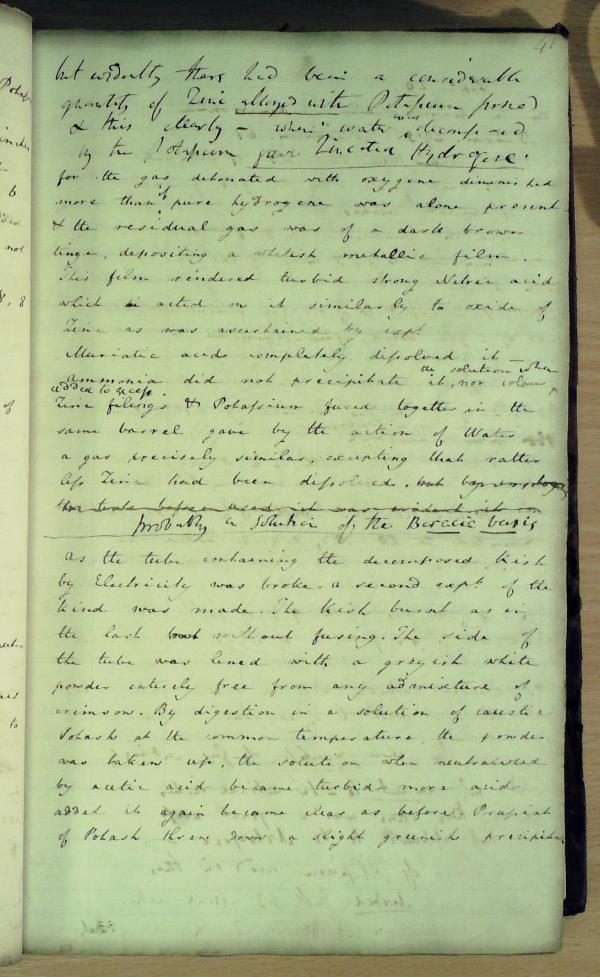 41
but evidently there had been a considerable
quantity of Zinc alloyed with Potassium formed
& this clearly - when water was decomposed
by the Potassium gave Zincated Hydrogene.
for the gas detonated with oxygene diminished
more than if pure hydrogene was alone present
& the residual gas was of a dark brown
tinge, depositing a whitish metallic film.
This film rendered turbid strong Nitric acid
which acted on it similarly to oxide of
Zinc as was ascertained by expt.
Muriatic acid completely dissolved it —
ammonia did not precipitate it, nor colour the solution when
added to excess.
Zinc filings & Potassium fused together in the
same barrel gave by the action of Water
a gas precisely similar, excepting that rather
less Zinc had been dissolved, but by
the tube before used it was evident
probably a solution of the Boracic basis
as the tube containing the decomposed Kish
by Electricity was broke. a second expt. of the
kind was made. The Kish burnt as in
the last but without fusing. The side of
the tube was lined with a greyish white
powder entirely free from any admixture of
crimson. By digestion in a solution of caustic
Potash at the common temperature the powder
was taken up, the solution when neutralised
by acetic acid became turbid more acid
added it again became clear as before. Prussiat
of Potash threw down a slight greenish precipitate